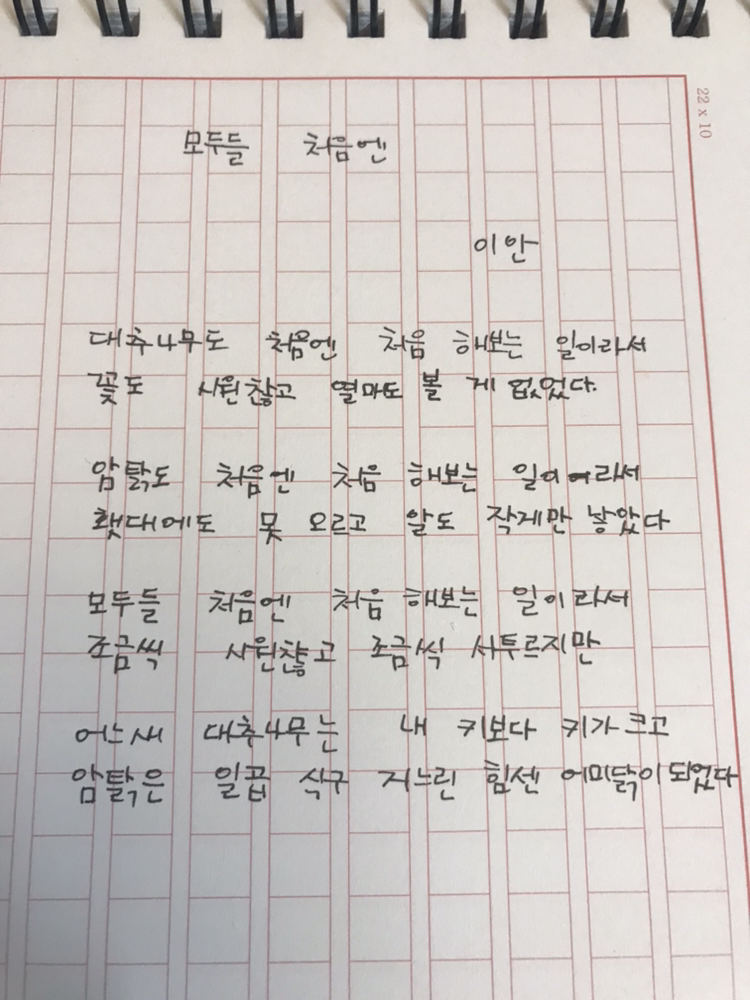 22 x 10
모두들 처음엔
이안
대추나무도 처음엔 처음 해보는 일이라서
꽃도 시원찮고 열매도 볼 게 없었다.
암탉도 처음엔 처음 해보는 일이라서
횃대에도 못 오르고 알도 작게만 낳았다
모두들 처음엔 처음 해보는 일이라서
조금씩 시원찮고 조금씩 서투르지만
어느새 대추나무는 내 키보다 키가 크고
암탉은 일곱 식구 거느린 힘센 어미닭이 되었다